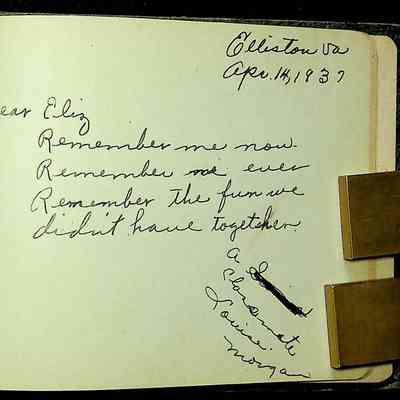 Elliston Va
Apr. 14, 1937
ear Eliz
Remember me now.
Remember me ever
Remember the fun we
didn't have together.
A
Classmate
Louise
Morgan